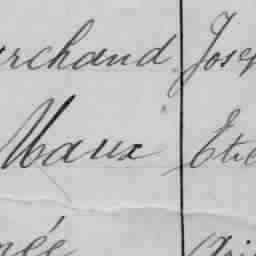 archand Jose
Maux Etie
née